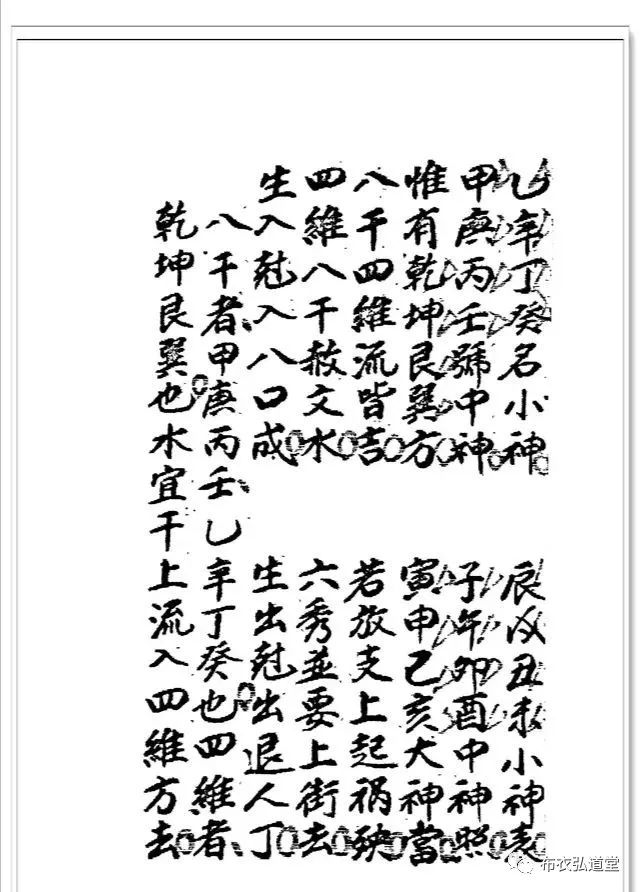 乙辛丁癸名小神　辰戌丑未小神表
甲庚丙壬號中神　子午卯酉中神照
惟有乾坤艮巽方　寅申己亥大神當
八干四維流皆吉　若放支上起祸殃
四維八干赦文水　六秀並要上街去
生入尅入八口成　生出尅出退人丁
八干者甲庚丙壬乙辛丁癸也四維者
乾坤艮巽也水宜干上流入四維方去
布衣弘道堂